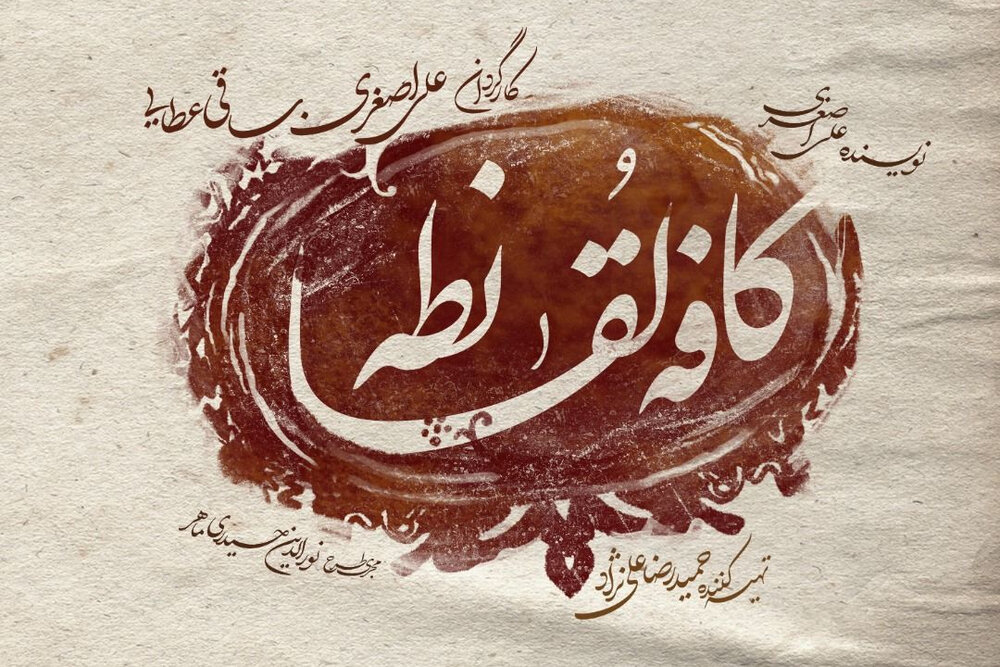 نویسنده علی اصغری
کارگردان علی اصغری . ساقی عطایی
کافه لُقانطه
تهیه کننده حمیدرضا علی نژاد
مجری طرح نورالدین حیدری ماهر